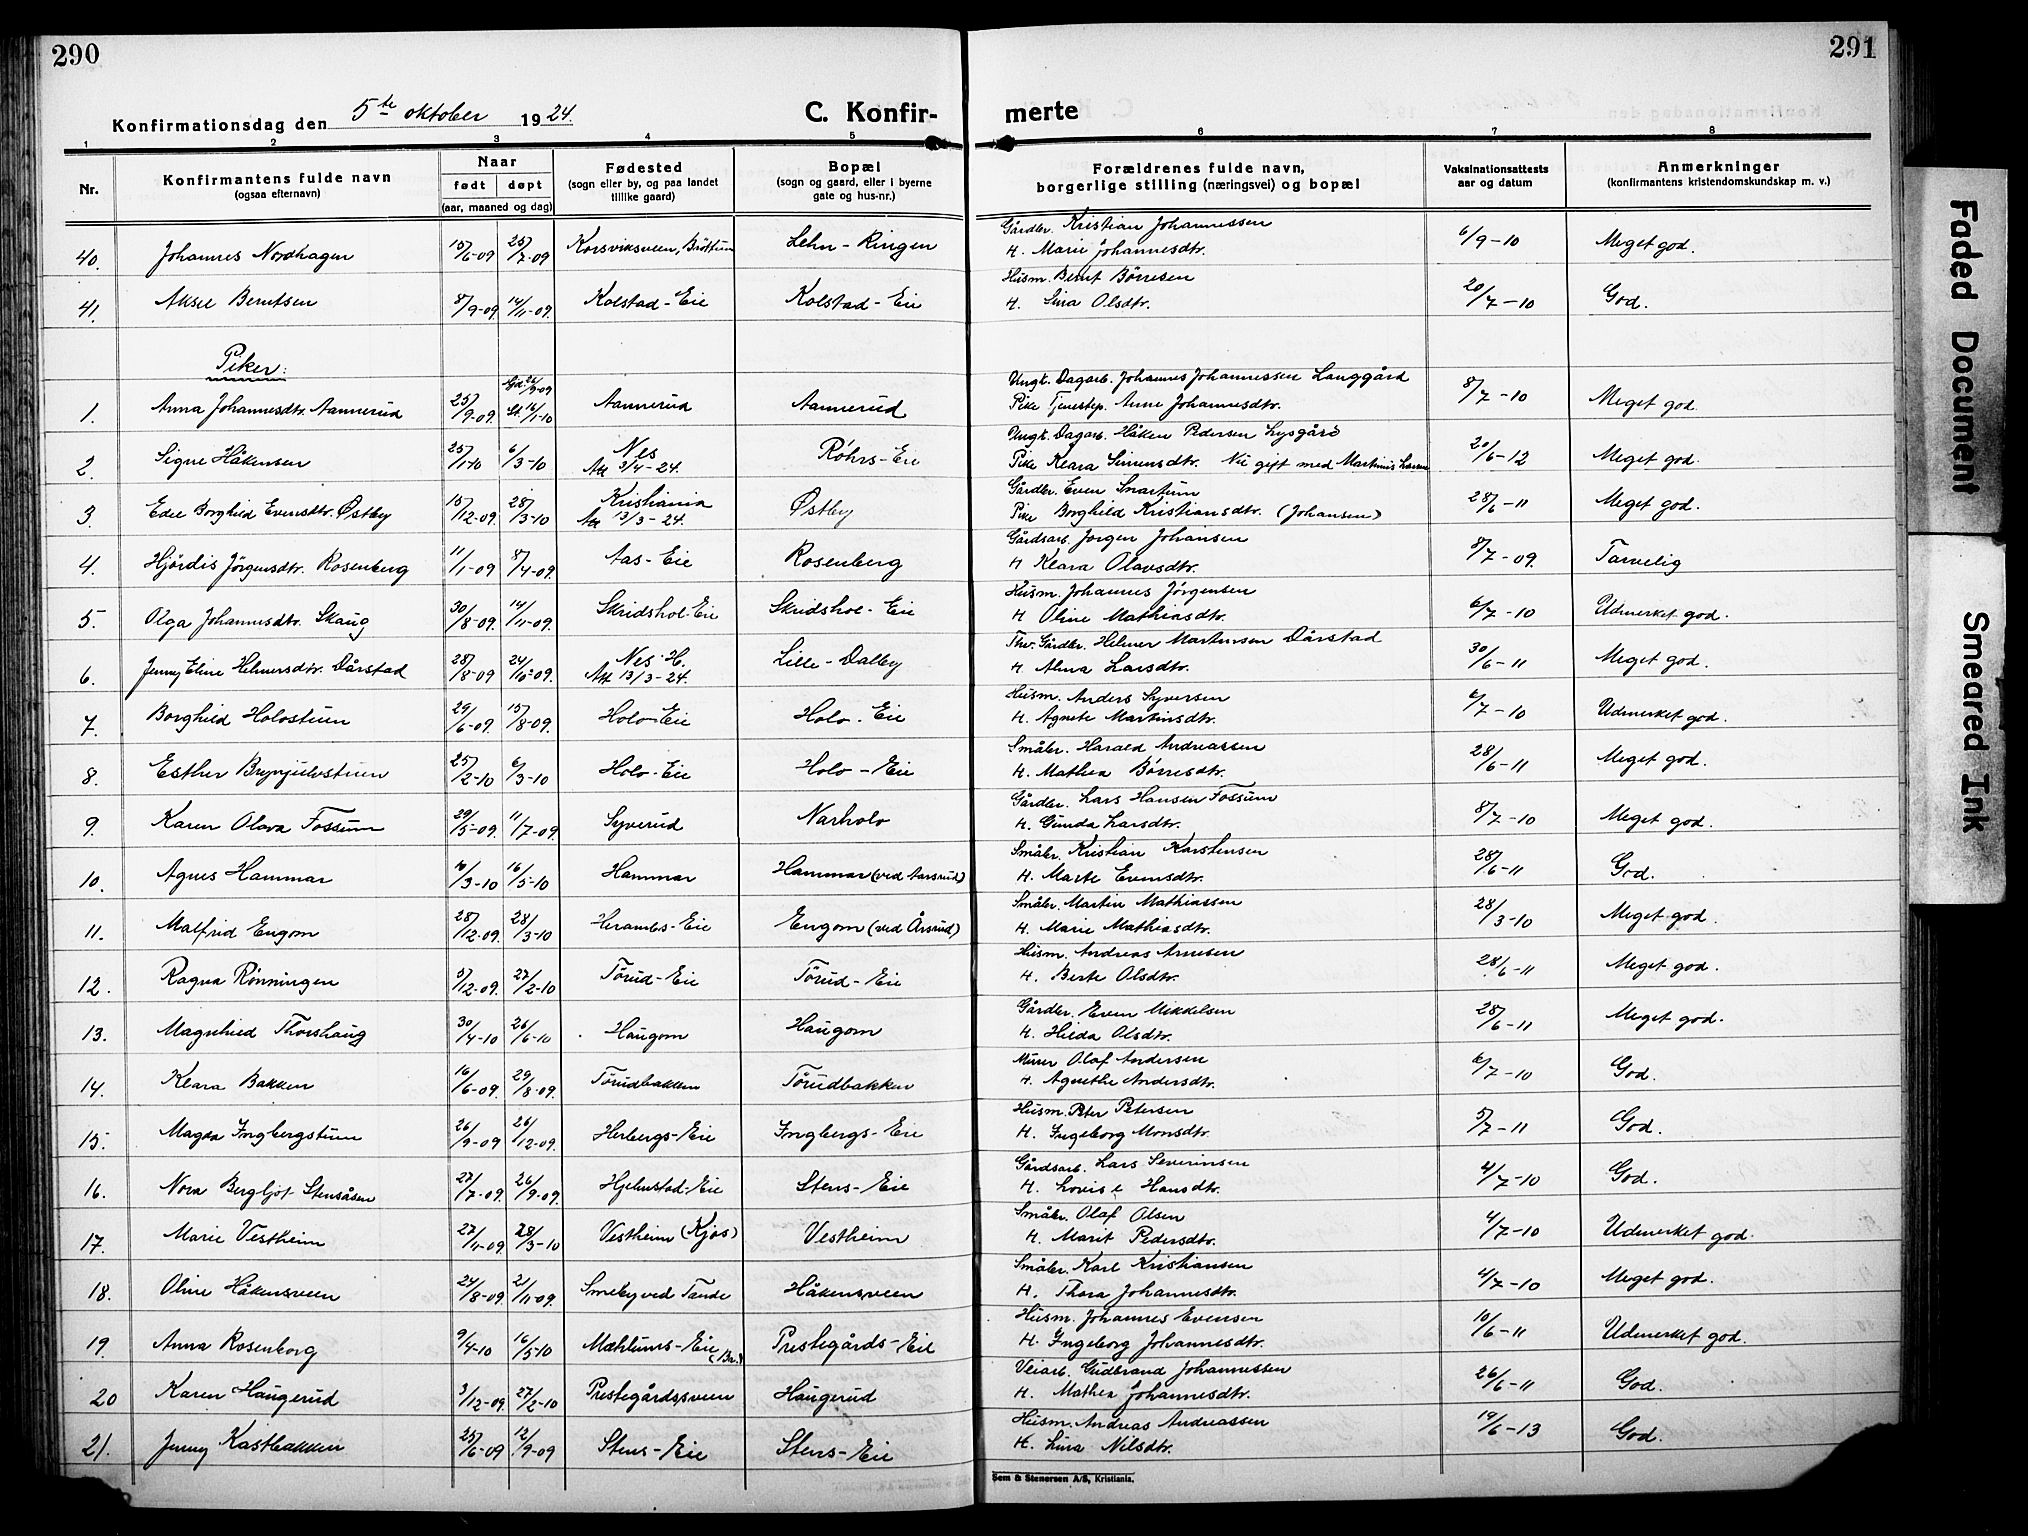 290
291
Konfirmationsdag den 5te oktober 1924.
C. Konfir-
merte
1 2 3 4 5 6 7 8
Nr.
Konfirmantens fulde navn
(ogsaa efternavn)
Naar
født døpt
(aar, maaned og dag)
Fødested
(sogn eller by, og paa landet
tillike gaard)
Bopæl
(sogn og gaard, eller i byerne
gate og hus-nr.)
Forældrenes fulde navn,
borgerlige stilling (næringsvei) og bopæl
Vaksinationsattests
aar og datum
Anmerkninger
(konfirmantens kristendomskundskap m. v.)
40. Johannes Nordhagen 15/6-09 25/7-09 Korsviksveen, Brøttum Lehn-Ringen Gårdbr. Kristian Johannessen 6/9-10 Meget god.
H. Marie Johannesdtr.
41. Aksel Berntsen 8/9-09 14/11-09. Kolstad-Eie Kolstad-Eie Husm. Bernt Børresen 20/7-10 God.
H. Lina Olsdtr.
Piker:
1. Anna Johannesdtr. Aannerud 25/9-09 hjd. 26/9-09 Aannerud Aannerud Ungk. Dagarb. Johannes Johannessen Langgård 8/7-10 Meget god.
St. 16/1-10 Pike Tjenestep. Anne Johannesdtr.
2. Signe Håkensen 25/1-10 6/3-10 Nes Røhrs-Eie Ungk. Dagarb. Håken Pedersen Lysgård 20/6-12 Meget god.
Att 3/4-24. Pike Klara Simensdtr. Nu gift med Martinus Larsen
3. Edel Borghild Evensdtr. Østby 15/12-09 28/3-10 Kristiania Østby Gårdbr. Even Snartum 28/6-11 Meget god.
Att 13/3-24. Pike Borghild Kristiansdtr. (Johansen)
4. Hjørdis Jørgensdtr. Rosenberg 11/1-09 8/4-09. Aas-Eie Rosenberg Gårdsarb. Jørgen Johansen 8/7-09. Tarvelig
H Klara Olavsdtr.
5. Olga Johannesdtr. Skaug 30/8-09. 14/11-09. Skridshol-Eie Skridshol-Eie Husm. Johannes Jørgensen 6/7-10 Udmerket god.
H Oline Mathiasdtr.
6. Jenny Eline Helmersdtr. Dårstad 28/8-09 24/10-09. Nes. H. Lille-Dalby Thv. Gårdbr. Helmer Martinsen Dårstad 30/6-11 Meget god.
Att 13/3-24. H Alma Larsdtr.
7. Borghild Holostuen 29/6-09. 15/8-09. Holo-Eie Holo-Eie Husm. Anders Syversen 6/7-10 Udmerket god.
H. Agnete Martinsdtr.
8. Esther Brynjulvstuen 25/2-10 6/3-10 Holo-Eie Holo-Eie Småbr. Harald Andreassen 28/6-11 Meget god.
H. Mathea Børresdtr.
9. Karen Olava Fossum 29/5-09. 11/7-09. Syverud Narholo Gårdbr. Lars Hansen Fossum 8/7-10 Meget god.
H. Gunda Larsdtr.
10. Agnes Hammar /3-10 16/5-10 Hammar Hammar (ved Aarsrud) Småbr. Kristian Karstensen 28/6-11 God.
H. Marte Evensdtr.
11. Malfrid Engom 28/12-09. 28/3-10 Herambs-Eie Engom (ved Årsrud) Småbr. Martin Mathiassen 28/3-10 Meget god.
H. Marie Mathiasdtr.
12. Ragna Rønningen 5/12-09. 27/2-10 Tørud-Eie Tørud-Eie Husm. Andreas Arnesen 28/6-11 Meget god.
H. Berte Olsdtr.
13. Magnhild Thorshaug 30/4-10 26/6-10 Haugom Haugom Gårdbr. Even Mikkelsen 28/6-11 Meget god.
H. Hilda Olsdtr.
14. Klara Bakken 16/6-09. 29/8-09. Tørudbakken Tørudbakken Murer Olaf Andersen 6/7-10 God.
H. Agnethe Andersdtr.
15. Magda Ingbergstuen 26/9-09 26/12-09. Herbergs-Eie Ingbergs-Eie Husm. Peter Petersen 5/7-11 God.
H. Ingeborg Monsdtr.
16. Nora Bergljot Stensåsen 27/7-09. 26/9-09. Hjelmstad-Eie Stens-Eie Gårdsarb. Lars Severinsen 4/7-10 God.
H. Lovise Hansdtr.
17. Marie Vestheim 27/11-09. 28/3-10 Vestheim (Kjos) Vestheim Småbr. Olaf Olsen 4/7-10 Udmerket god.
H. Marit Pedersdtr.
18. Oline Håkensveen 24/8-09. 21/11-09. Smeby ved Tande Håkensveen Småbr. Karl Kristiansen 4/7-10 Meget god.
H. Thora Johannesdtr.
19. Anna Rosenborg 9/4-10 16/5-10 Mæhlums-Eie (Br.) Prestegårds-Eie Husm. Johannes Evensen 10/6-11 Udmerket god.
H. Ingeborg Johannesdtr.
20 Karen Haugerud 3/12-09. 27/2-10 Prestegårdssveen Haugerud Veiarb. Gudbrand Johannessen 26/6-11 God.
H. Mathea Johannesdtr.
21. Jenny Kastbakken 25/6-09 12/9-09 Stens-Eie Stens-Eie Husm. Andreas Andreassen 19/6-13 God.
H. Lina Nilsdtr.
Sem & Stenersen A/S, Kristiania.
Faded Document
Smeared Ink